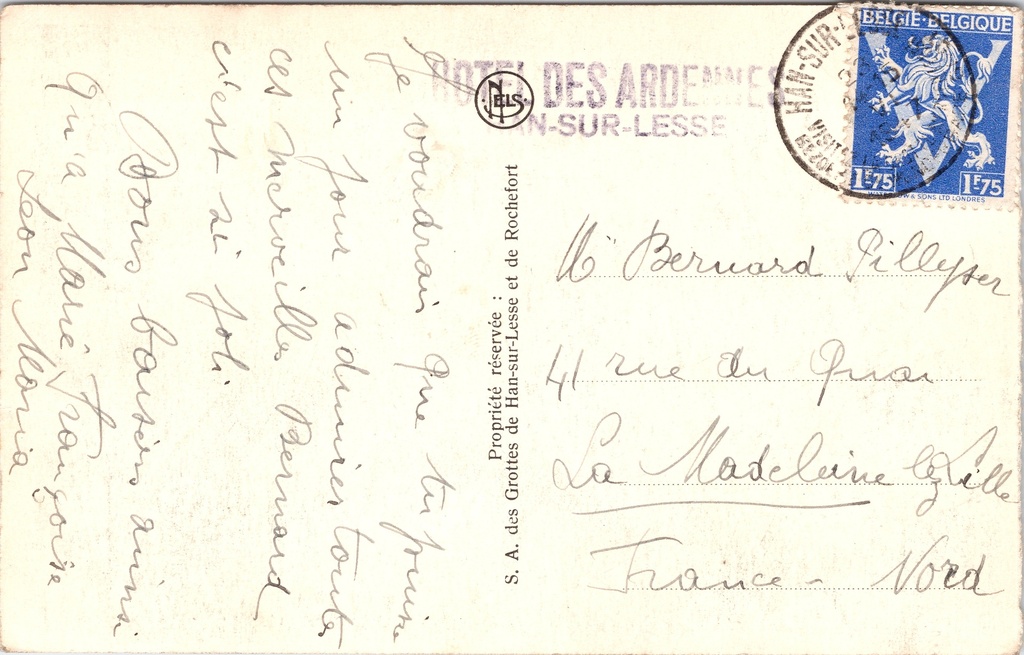 Je voudrais que tu puisse
un jour admirer toutes
ces merveilles Bernard
c'est si joli
Bons baisers ainsi
qu'a Marie Françoise
Leon Maria
HOTEL DES ARDENNES
HAN-SUR-LESSE
NELS
Propriété réservée :
S. A. des Grottes de Han-sur-Lesse et de Rochefort
BELGIE-BELGIQUE
1F75 1F75
& SONS LTD LONDRES
HAN-SUR-LESSE
Mr Bernard Pillyser
41 rue du Quai
La Madeleine lez Lille
France - Nord